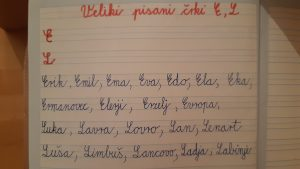 Veliki pisani črki E, L
E
L
Erik, Emil, Ema, Eva, Edo, Ela, Eka,
Ermanovec, Elerji, Erzelj, Evropa,
Luka, Lavra, Lovro, Lan, Lenart
Luša, Limbuš, Lancovo, Ladja, Labinje